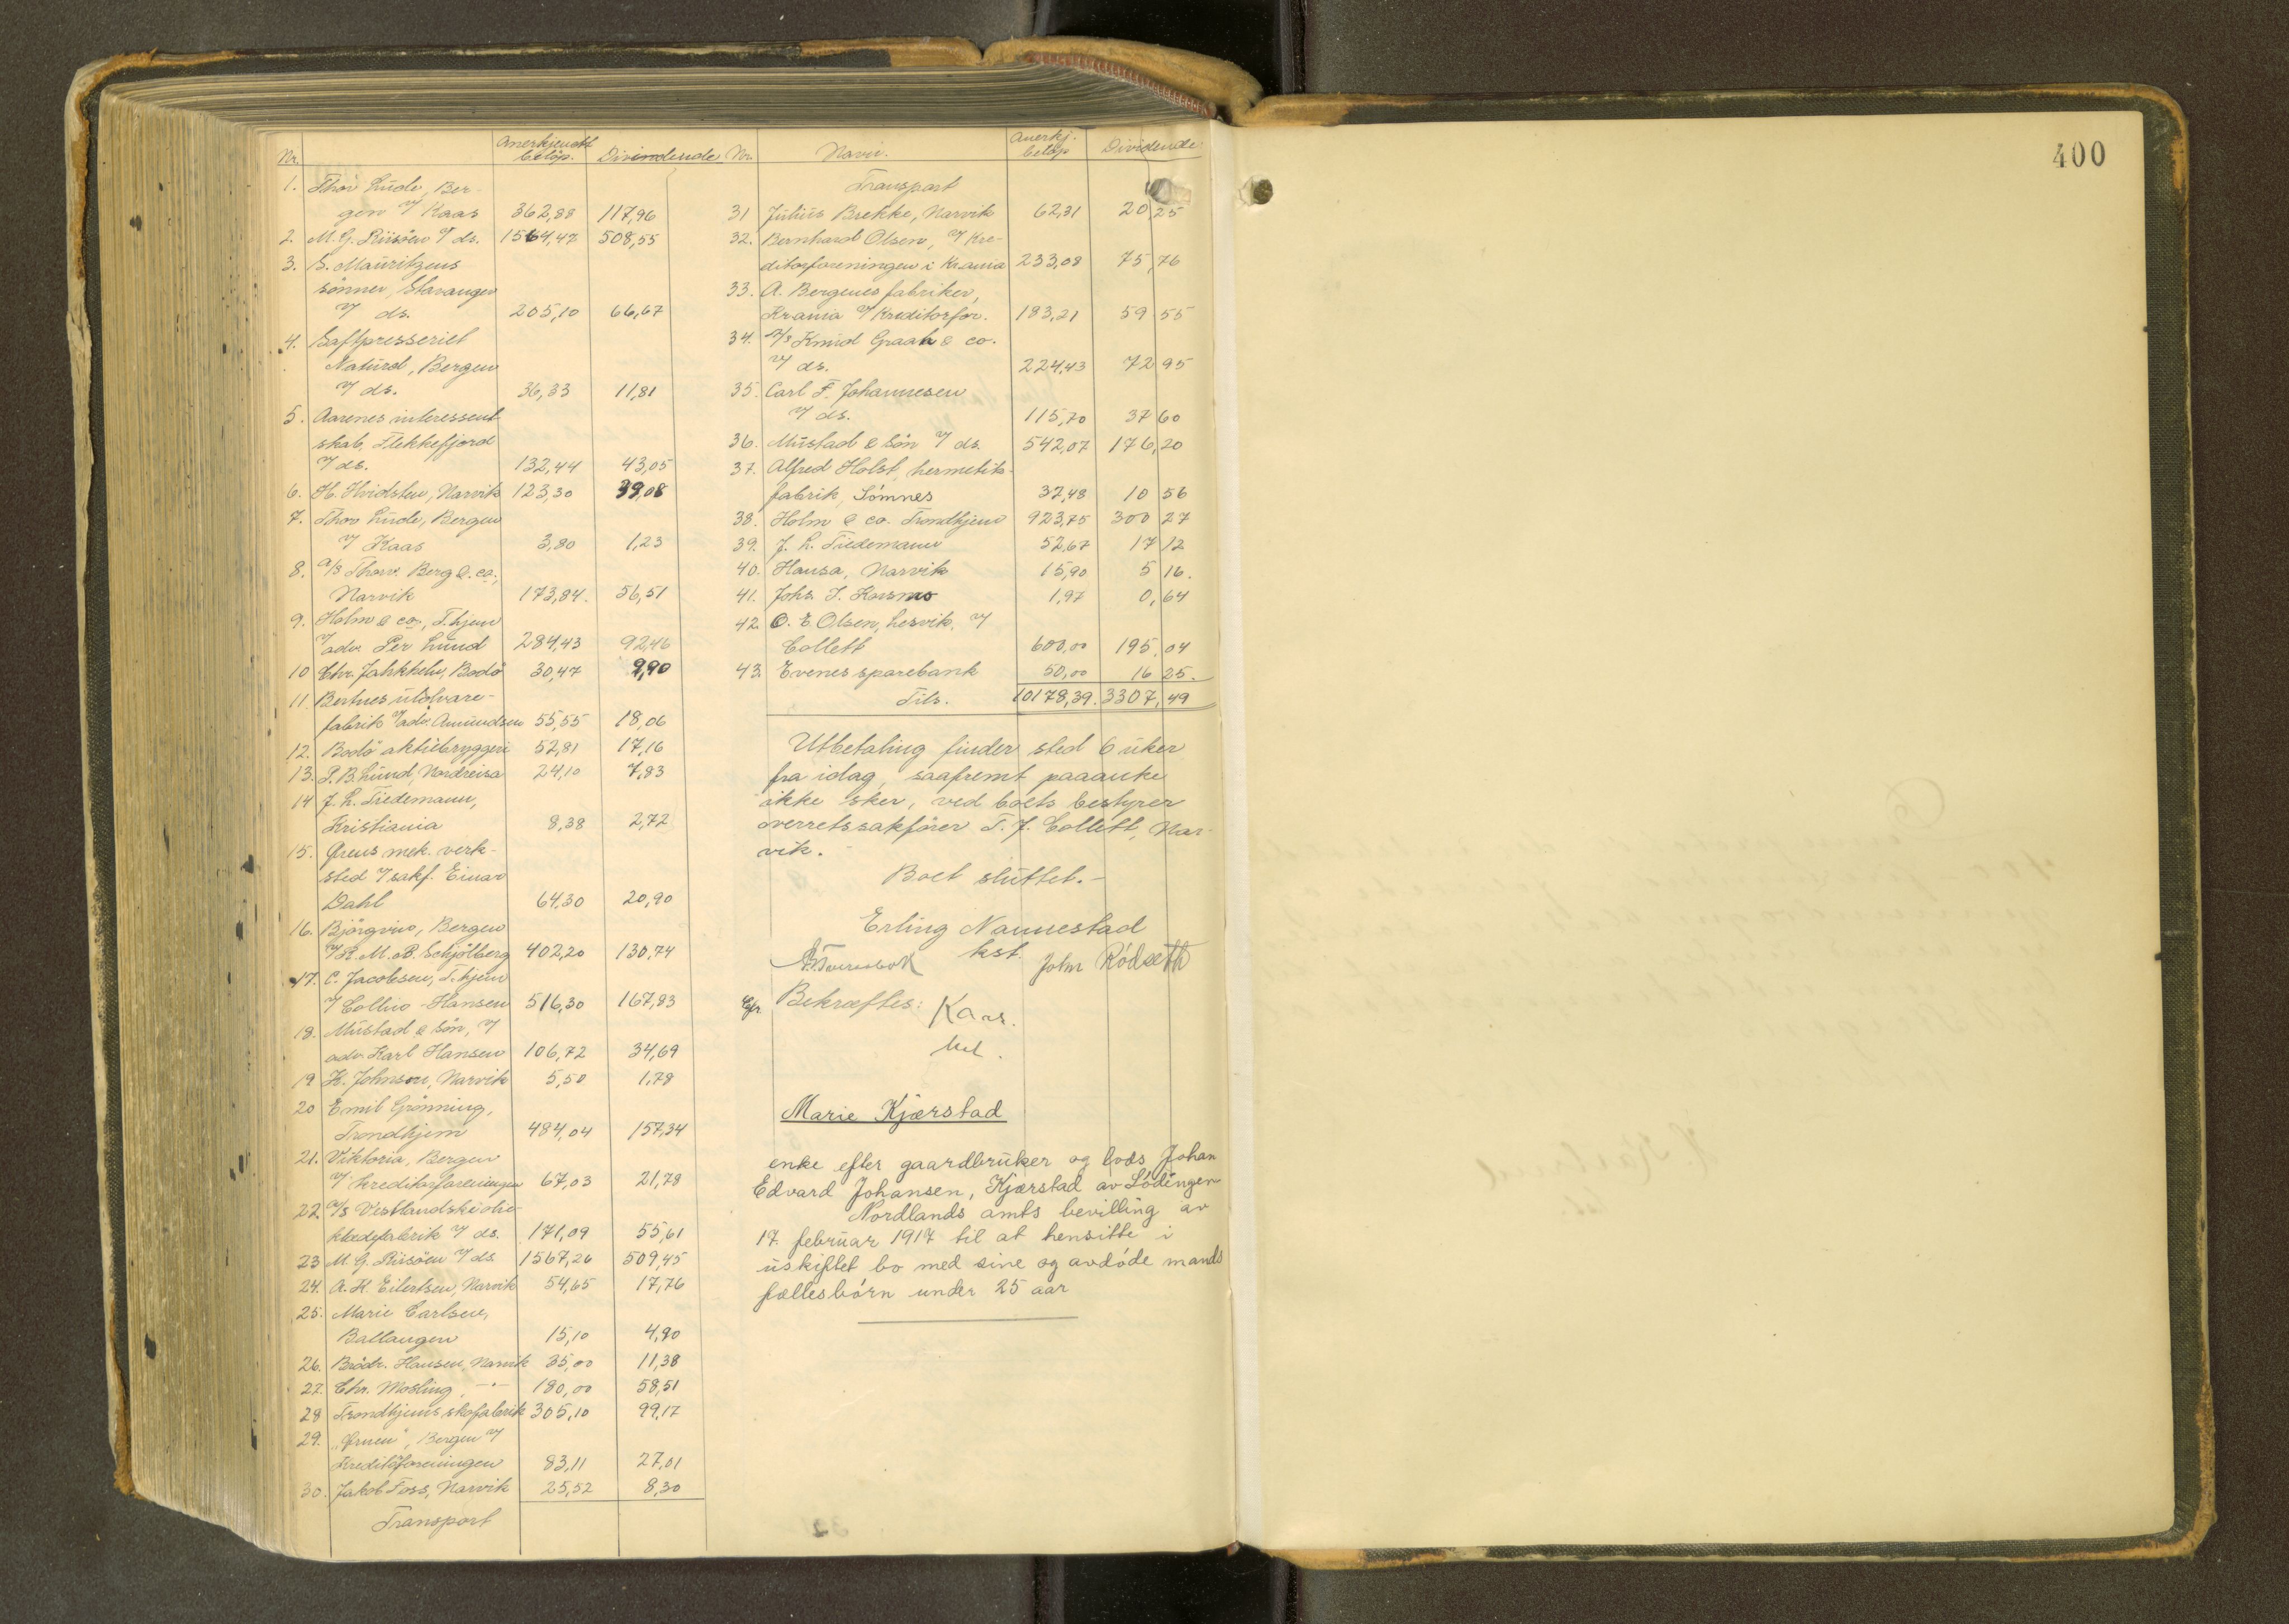 Nr. Anerkjendt beløp. Dividende
1. Thor Lude, Ber-
gen v/ Kaas 362,88 117,96
2. M. G. Riisöen v/ ds. 1564,47 508,55
3. S. Mauritzens
sønner, Stavanger
v/ ds. 205,10 66,67
4. Saftpresseriet
Natural, Bergen
v/ ds. 36,33 11,81
5. Aarenes interessent
skab, Flekkefjord
v/ ds. 132,44 43,05
6. H. Hvidsten, Narvik 123,30 39,08
7. Thor Lude, Bergen
v/ Kaas 3,80 1,23
8. A/S Thorv. Berg & co.,
Narvik 173,84. 56,51
9. Holm & co., T.hjem
v/ adv. Per Lund 284,43 92,46
10 Chr. Jahkkeln, Bodö 30,47 9,90
11 Bertnes uldvare-
fabrik v/ adv. Amundsen 55,55 18,06
12. Bodö aktiebryggeri 52,81 17,16
13. P. B. Lund, Nordreisa 24,10 7,83
14 J. L. Tiedemann,
Kristiania 8,38 2,72
15. Ørens mek. verk-
sted v/ sakf. Einar
Dahl 64,30 20,90
16. Björgvin, Bergen
v/ R. M. B. Schjölberg 402,20 130,74
17. C. Jacobsen, T.hjem
v/ Collin-Hansen 516,30 167,83
18. Mustad & Sön, v/
adv. Karl Hansen 106,72 34,69
19 K. Johnson, Narvik 5,50 1,78
20 Emil Grönning,
Trondhjem 484,04 157,34
21. Viktoria, Bergen
v/ Kreditorforeningen 67,03 21,78
22. A/S Vestlandske olie-
klædefabrik v/ ds. 171,09 55,61
23 M. G. Riisöen v/ ds. 1567,26 509,45
24. A. K. Eilertsen, Narvik 54,65 17,76
25. Marie Carlsen,
Ballangen 15,10 4,90
26. Brödr. Hansen, Narvik 35,00 11,38
27. Chr. Mosling, -"- 180,00 58,51
28 Trondhjems skofabrik 305,10 99,17
29. „Ørnen", Bergen v/
Kreditorforeningen 83,11 27,01
30. Jakob Foss, Narvik 25,52 8,30
Transport
Nr. Navn. Anerkj. beløp Dividende.
Transport
31 Julius Brekke, Narvik 62,31 20,25
32. Bernhard Olsen, v/ Kre-
ditorforeningen i Krania 233,08 75,76
33. A. Bergenes fabriker,
Krania v/ Kreditorfor. 183,21 59 55
34. A/S Knud Graah & co.
v/ ds. 224,43 72 95
35. Carl F. Johannesen
v/ ds. 115,70 37 60
36. Mustad & Sön v/ ds. 542,07 176,20
37. Alfred Holst, hermetik-
fabrik, Sömnes 32,48 10 56
38. Holm & co. Trondhjem 923,75 300 27
39. J. L. Tiedemann 52,67 17 12
40. Hansa, Narvik 15,90 5 16.
41. Johs. I. Karsmo 1,97 0,64
42. O. E. Olsen, Lesvik, v/
Collett 600,00 195,04
43. Evenes sparebank 50,00 16 25.
Tils. 10178,39. 3307,49
Utbetaling finder sted 6 uker
fra idag, saafremt paaanke
ikke sker, ved boets bestyrer
overretssakförer T. J. Collett, Nar-
vik.
Boet sluttet.-
Erling Nannestad
kst.
John Rödseth
Bekræftes: Kaas.
kst.
Marie Kjærstad
enke efter gaardbruker og lods Johan
Edvard Johansen, Kjærstad av Lödingen
Nordlands amts bevilling av
17. februar 1917 til at hensitte i
uskiftet bo med sine og avdöde mands
fællesbörn under 25 aar
400